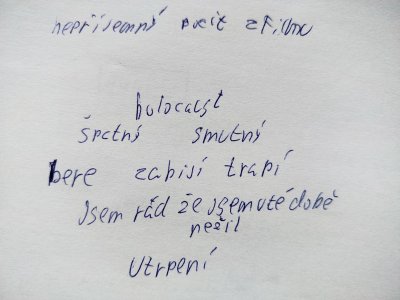 nepříjemný pocit z filmu
holocaust
špatný smutný
bere zabijí trápí
Jsem rád že jsem v té době
nežil
Utrpení